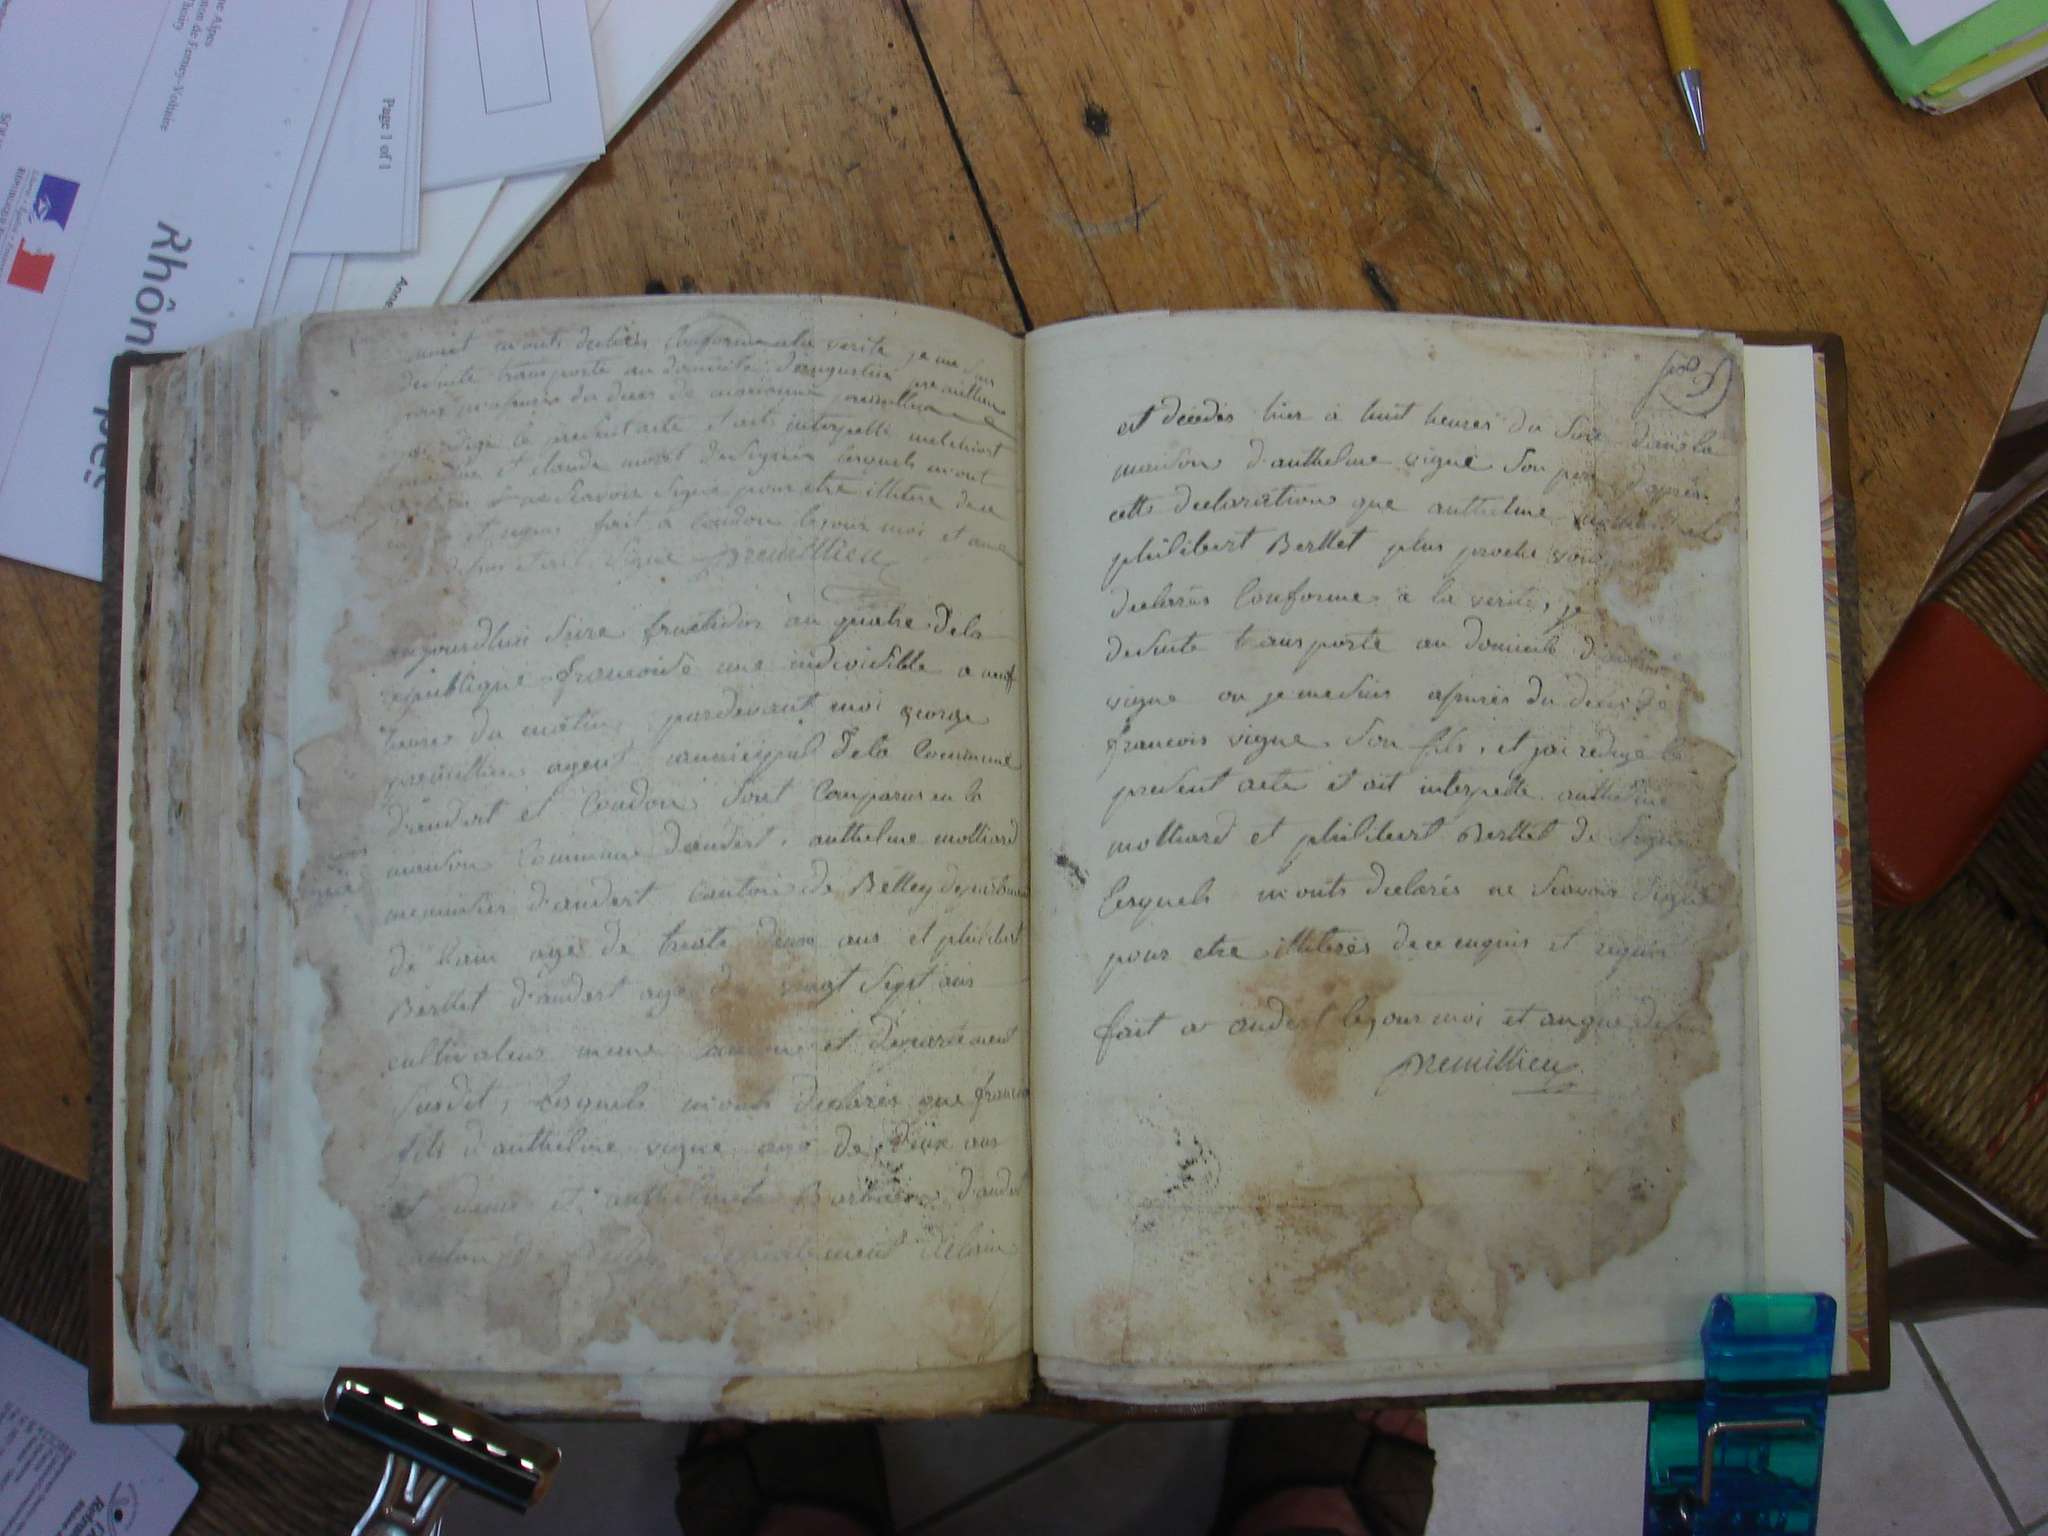 m'ont declarés Conforme a la verite je me suis
desuite transporté au domicile d'augustin premillieu
pour m'asurer du deces de
redigé le present acte et ait interpellé melchiort
et claude moret de Signin lesquels m'ont
ne Scavoir Signé pour etre illitere de ce
et requis fait à Coudon le jour moi et an
Signé premillieu
aujourdhui Seize fructidor an quatre dela
republique francoise une indivisible a neuf
heures du matin pardevant moi george
premillieu agent municipal dela Commune
d'andert et Coudon Sont Comparus en la
maison Commune d'andert, anthelme molliard
menuitier d'andert Canton de Belley departement
de l'ain agé de trente deux ans et philibert
Berllet d'andert agé de vingt Sept ans
cultivateur meme canton et departement
Susdit, lesquels m'onts declarés que francois
fils d'anthelme vigne agé de deux ans
et demi et anthelmete Barbier d'andert
canton de Belley departement de lain
fol. 5
est décédés hier à huit heures du Soir dans la
maison d'anthelme vigne Son pere d'après
cette declaration que anthelme
philibert Berllet plus proche voi
declarés Conforme à la verité, je
desuite transporté au domicile d'anthelme
vigne ou je me Suis asurés du deces de
francois vigne Son fils, et jai redigé le
present acte et ait interpellé anthelme
molliard et philibert Berllet de Signer
lesquels m'onts declarés ne Scavoir Signé
pour etre illiterés de ce enquis et requis
fait a andert le jour moi et an que desus
premillieu
Page 1 of 1
Rhôn
pes
Anne
ne Alpes
tion de Ferney-Voltaire